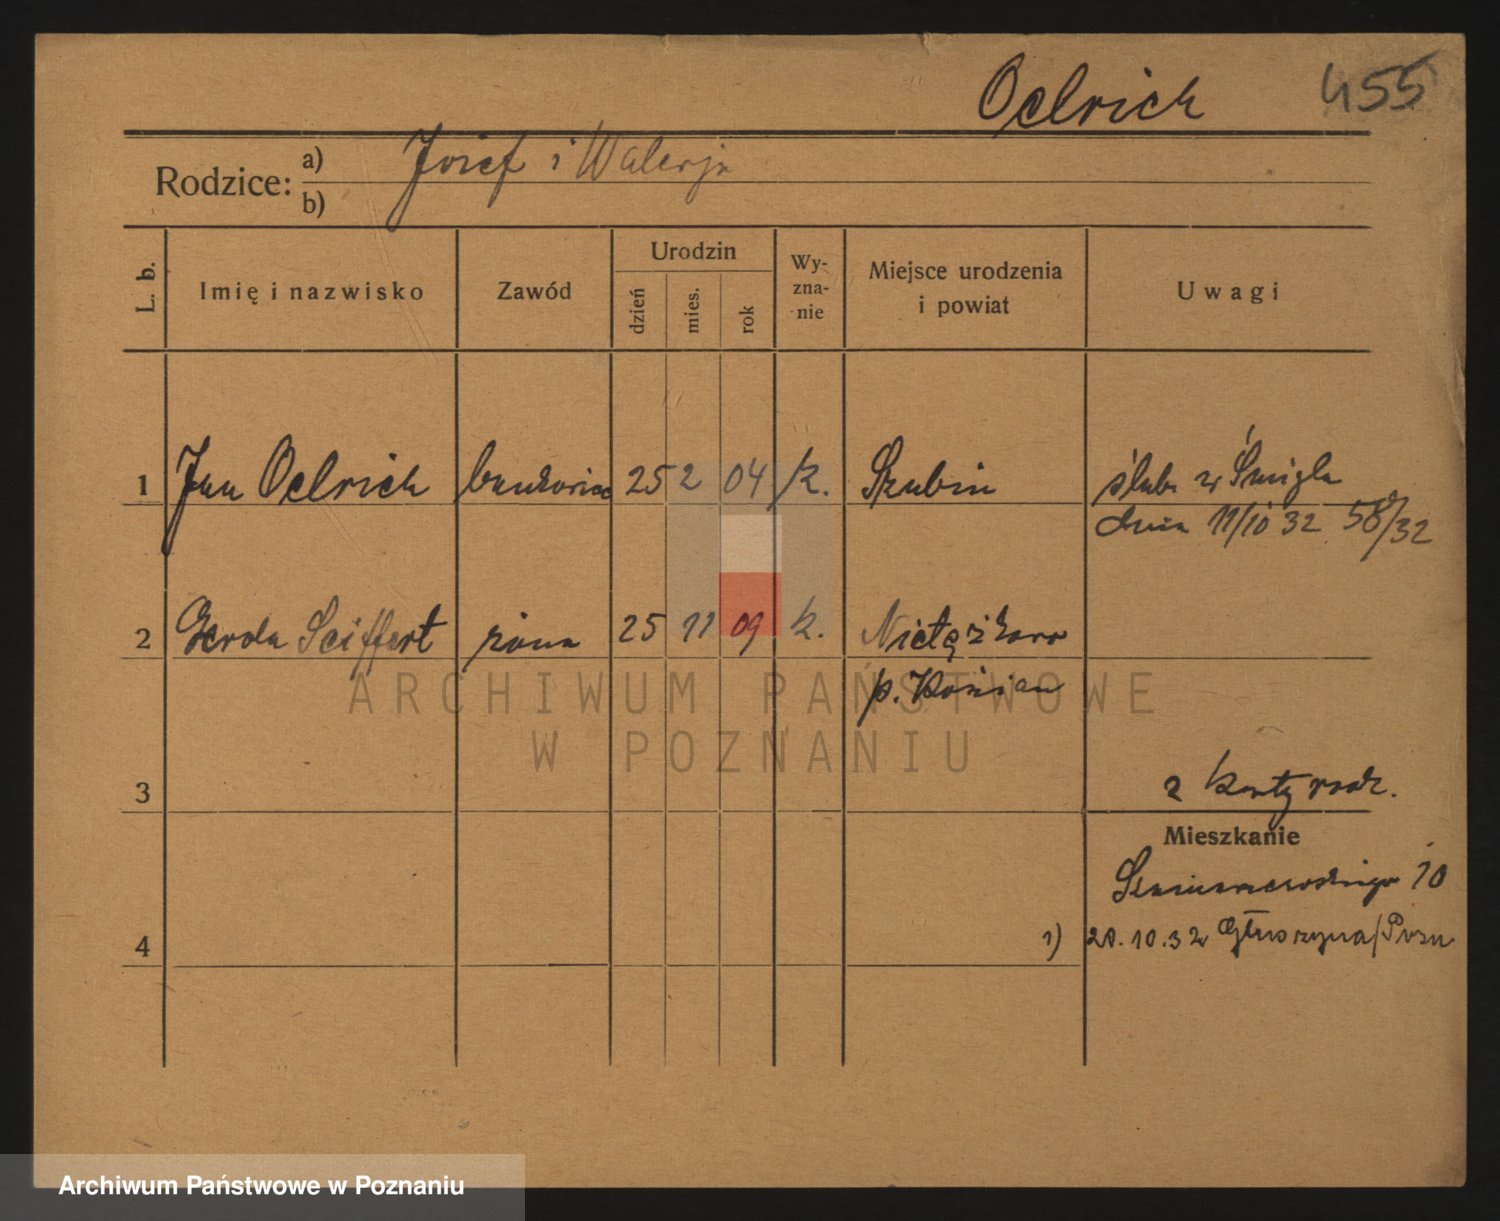 Oelrich 455
Rodzice: a) Józef i Walerja
b)
L. b. Imię i nazwisko Zawód Urodzin dzień mies. rok Wy-zna-nie Miejsce urodzenia i powiat Uwagi
1 Jan Oelrich bankowiec 25 2 04 k. Szubin ślub w Śmiglu
dnia 11/10 32 58/32
2 Gerda Seiffert żona 25 11 09 k. Nietążkowo
p. Kościan
ARCHIWUM PAŃSTWOWE
W POZNANIU
3 z karty rodz.
Mieszkanie
10
4 1) 28.10.32 Głuszyna/Pozn
Archiwum Państwowe w Poznaniu